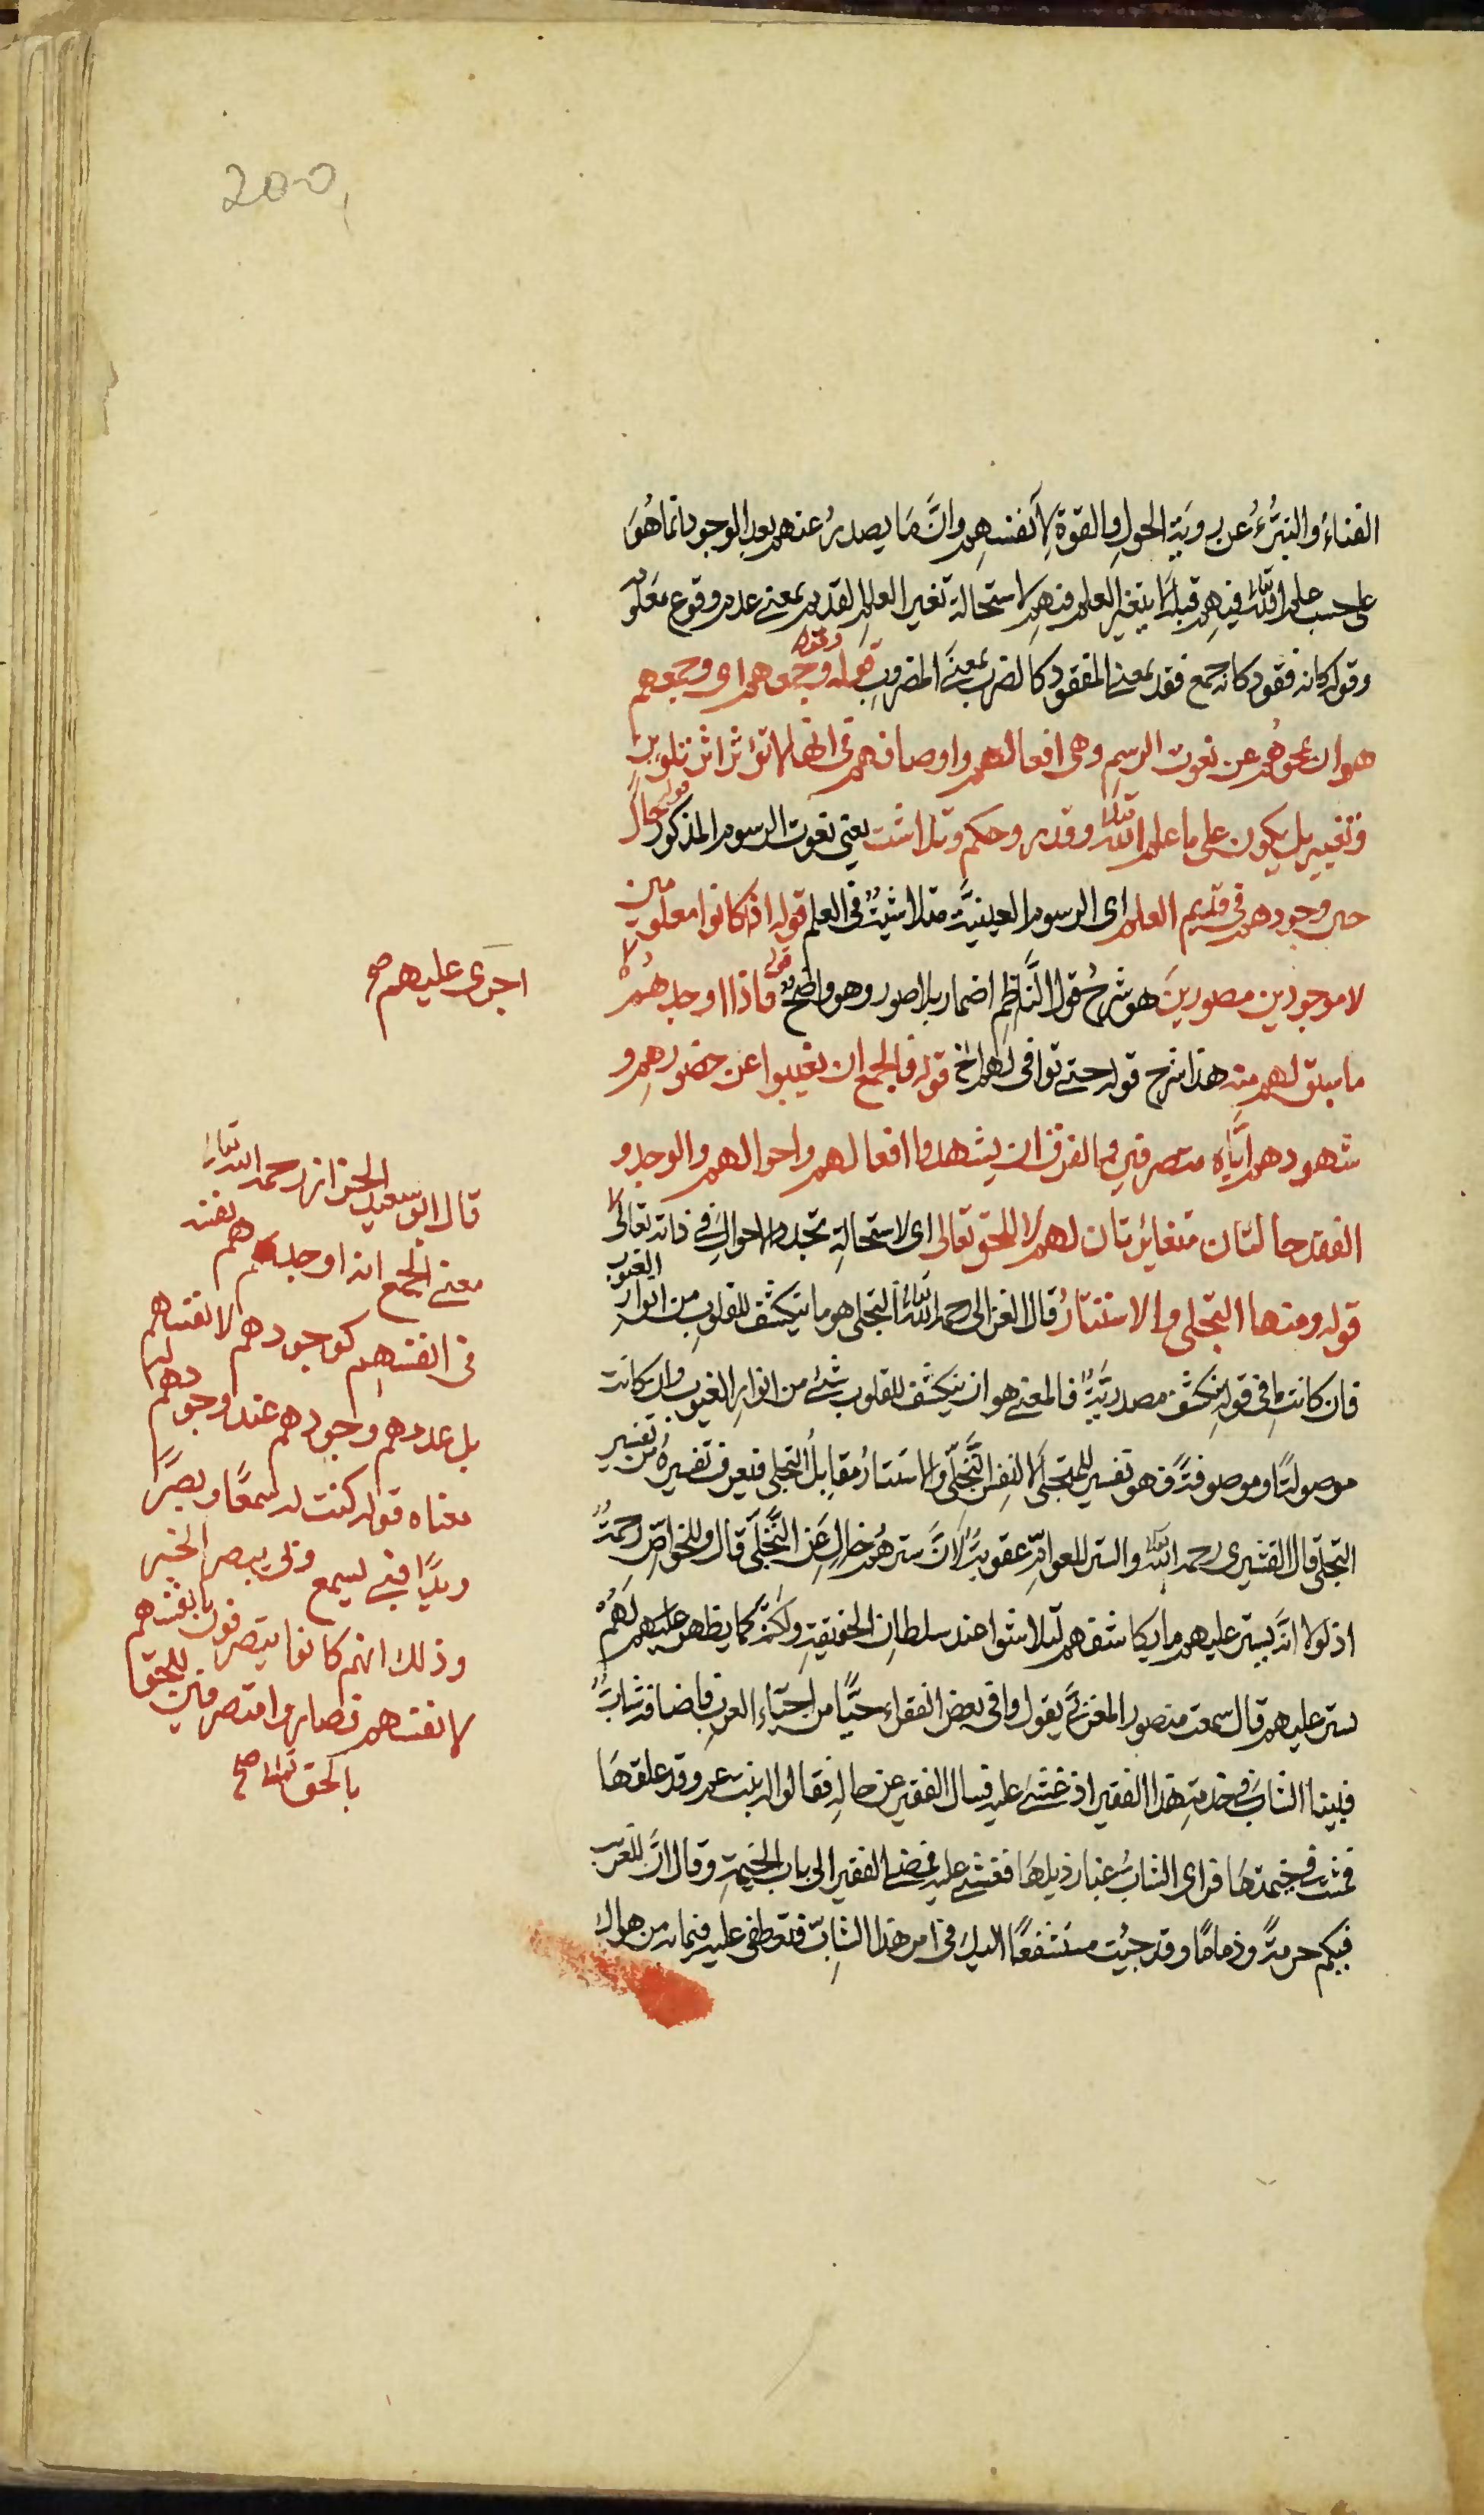 200
الفناء والتبرُّء عن رويۃ الحول والقوة لانفسهم وانَّ ما يصدر عنهم بعد الوجود انما هو
على حسب علم الله تعالى فيهم قبل لا يتغير العلم فيهم لاستحالة تغير العلم القديم بمعنے عدم وقوع معلوم
وقوله كانه فقود كانه جمع فقد بمعنے المفقود كالضرب بمعنے المضروب قوله وجمعهم اى وجمعهم
هو ان محوهم عن نعوت الرسم وهى افعالهم واوصافهم فى انها لا تؤثر اثر تلوين
وتغيير بل يكون على ما علم الله تعالى وقدر وحكم وتلاشت يعنى نعوت الرسوم المذكور قوله حال
حين وجودهم فى قديم العلم اى الرسوم العينيَّة متلاشيةٌ فى العلم قوله اذ كانوا معلومين
لا موجودين مصورين هو شرح قول النَّاظم اضمار بلا صور وهو واضح قوله فاذا اوجدهم
ما سبق لهم منه هذا شرح قوله حتے توافى لهم الخ قوله فالجمع ان يغيبوا عن حضورهم و
شهودهم ايَّاه متصرفين والفرق ان يشهدوا افعالهم واحوالهم والوجد و
الفقد حالتان متغائرتان لهم لا للحق تعالى اى لاستحالة تجدد الاحوال فى ذاته تعالى
قوله ومنها التجلى والاستتار قال الغزالى رحمه الله تعالى التجلى هو ما ينكشف للقلوب من انوار الغيوب
فان كانت ما فى قوله ينكشف مصدريةً فالمعنے هو ان ينكشف للقلوب شئ من انوار الغيوب وان كانت
موصولةً او موصوفةً فهو تفسير للمتجلى لا لنفس التَّجلّى والاستتار مقابل التجلى فيعرف تفسيره من تفسير
التجلى قال القشيرى رحمه الله والستر للعوام عقوبةٌ لانَّ سترهم خال عن التَّجلّى قال وللخواصّ رحمةٌ
اذ لولا انَّه يستر عليهم ما يكاشفهم لتلاشوا عند سلطان الحقيقة ولكنه كما يظهر عليهم لهم
يستر عليهم قال سمعت منصور المغربىَّ يقول وافى بعض الفقراء حيًّا من احياء العرب فاضافه شابٌّ
فبينا الشابّ فى خدمة هذا الفقير اذ غشے عليه فسال الفقير عن حاله فقالوا له بنت عم وقد علقها
فمشت فى خيمتها فراى الشابُّ غبار ذيلها فغشے عليه فمضے الفقير الى باب الخيمة وقال انَّ للغريب
فيكم حرمةً وذماما وقد جئت مستشفعًا اليك فى امر هذا الشابّ فتعطفى عليه فيما به من هواك
اجرى عليهم صح
قال ابو سعيد الخزاز رحمه الله تعالى
معنے الجمع انه اوجدهم نفسه
فى انفسهم كوجودهم لانفسهم
بل عدمهم وجودهم عند وجودهم له
معناه قوله كنت له سمعًا وبصرًا
ويدًا فبى يسمع وبى يبصر الخبر
وذلك انهم كانوا يتصرفون بانفسهم
لانفسهم فصاروا متصرفين للحق
بالحق تعالى صح